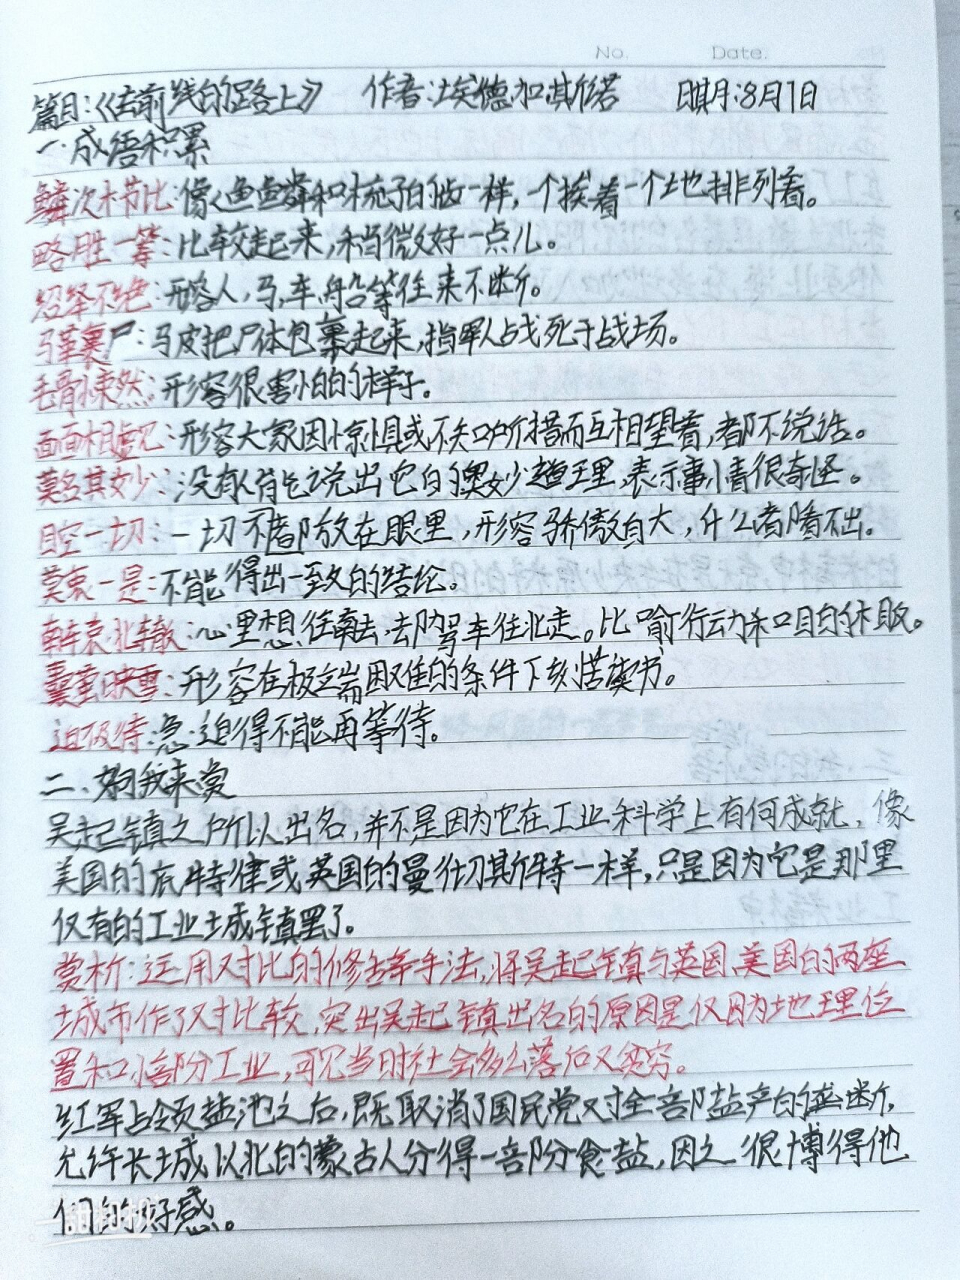 No. Date.
篇目:《去前线的路上》 作者:埃德加·斯诺 日期:8月1日
一.成语积累
鳞次栉比:像鱼鳞和梳子的齿一样,一个挨着一个地排列着。
略胜一筹:比较起来,稍微好一点儿。
络绎不绝:形容人,马,车,船等往来不断。
马革裹尸:马皮把尸体包裹起来,指军人战死于战场。
毛骨悚然:形容很害怕的样子。
面面相觑:形容大家因惊惧或不知所措而互相望着,都不说话。
莫名其妙:没有人能说出它的奥妙道理,表示事情很奇怪。
目空一切:一切都不放在眼里,形容骄傲自大,什么都看不出。
莫衷一是:不能得出一致的结论。
南辕北辙:心里想往南去,却驾车往北走。比喻行动和目的相反。
囊萤映雪:形容在极端困难的条件下刻苦读书。
迫不及待:急迫得不能再等待。
二.好句我来赏
吴起镇之所以出名,并不是因为它在工业科学上有何成就,像
美国的底特律或英国的曼彻斯特一样,只是因为它是那里
仅有的工业城镇罢了。
赏析:运用对比的修辞手法,将吴起镇与英国,美国的两座
城市作了对比较,突出吴起镇出名的原因是仅因为地理位
置和小部分工业,可见当时社会多么落后又贫穷。
红军占领盐池之后,既取消了国民党对全部盐产的垄断,
允许长城以北的蒙古人分得一部分食盐,因之很博得他
们的好感。
甜相机